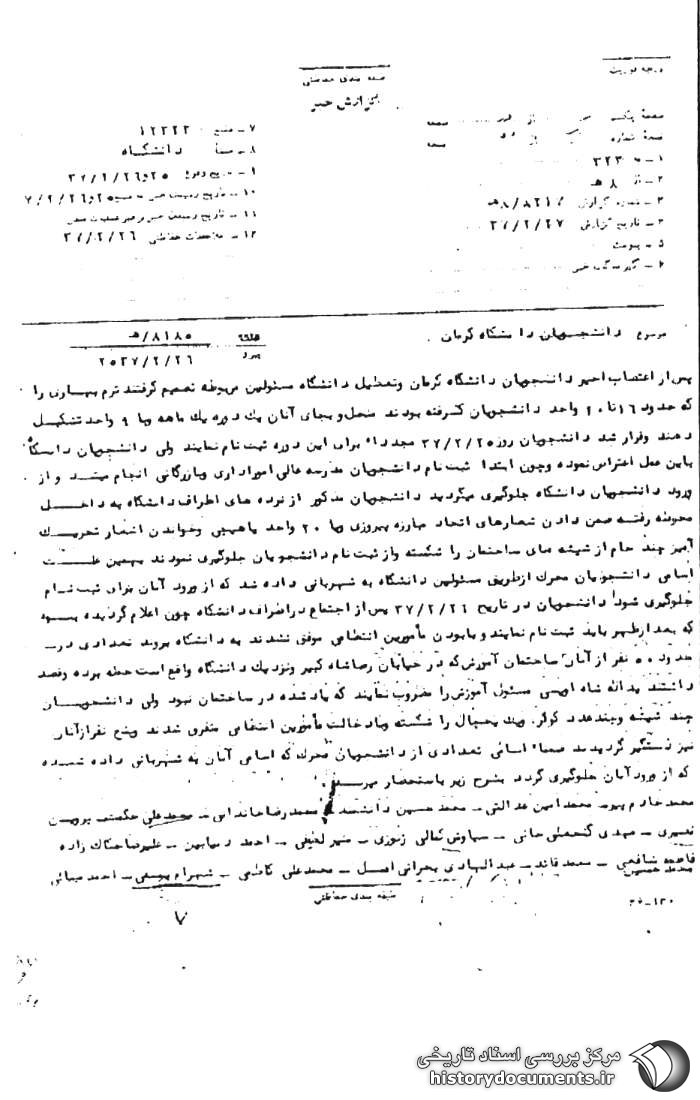 درجه فوریت
طبقه بندی حفاظتی
گزارش خبر
صفحه
نسخه شماره
۱ـ به ۳۲۳
۲ـ از ۸ هـ
۳ـ شماره گزارش
۴ـ تاریخ گزارش ۳۷/۲/۲۷
۵ـ پیوست
۶ـ گیرندگان خبر
۷ـ منبع ۱۲۳۲۳
۸ـ منشأ دانشگاه
۹ـ تاریخ وقوع ۲۵و۳۷/۲/۲۶
۱۰ـ تاریخ رسیدن خبر به منبع
۱۱ـ تاریخ رسیدن خبر برهبر عملیات
۱۲ـ ملاحظات حفاظتی ۳۷/۲/۲۶
موضوع دانشجویان دانشگاه کرمان
عطف
پیرو
۸۱۸۵/هـ
۲۵۳۷/۲/۲۶
پس از اعتصاب اخیر دانشجویان دانشگاه کرمان وتعطیل دانشگاه مسئولین مربوطه تصمیم گرفتند ترم بهاری را
که حدود ۱۶تا۲۰ واحد دانشجویان گرفته بودند منحل وبجای آنان یک دوره یک ماهه وبا ۹ واحد تشکیل
دهند وقرار شد دانشجویان روز ۳۷/۲/۲۵ مجددا برای این دوره ثبت نام نمایند ولی دانشجویان دانشگاه
باین عمل اعتراض نموده وچون ابتدا ثبت نام دانشجویان مدرسه عالی اموراداری وبازرگانی انجام میشد و از
ورود دانشجویان دانشگاه جلوگیری میگردید دانشجویان مذکور از نرده های اطراف دانشگاه به داخل
محوطه رفته ضمن دادن شعارهای اتحاد مبارزه پیروزی ویا ۲۰ واحد یا هیچی وخواندن اشعار تحریک
آمیز چند جام از شیشه های ساختمان را شکسته واز ثبت نام دانشجویان جلوگیری نمودند بهمین علت
اسامی دانشجویان محرک ازطریق مسئولین دانشگاه به شهربانی داده شد که از ورود آنان برای ثبت نام
جلوگیری شود دانشجویان در تاریخ ۳۷/۲/۲۶ پس از اجتماع دراطراف دانشگاه چون اعلام گردیده بود
که بعدازظهر باید ثبت نام نمایند و بابودن مأمورین انتظامی موفق نشدند به دانشگاه بروند تعدادی در
حدود ۵۰ نفر از آنان ساختمان آموزش که در خیابان رضاشاه کبیر ونزدیک دانشگاه واقع است حمله برده وقصد
داشتند یداله شاه اویسی مسئول آموزش را مضروب نمایند که یادشده در ساختمان نبود ولی دانشجویان
چند شیشه وچندعدد کولر ویک یخچال را شکسته وبادخالت مأمورین انتظامی متفرق شدند وپنج نفرازآنان
نیز دستگیر گردیدند ضمنا اسامی تعدادی از دانشجویان محرک که اسامی آنان به شهربانی داده شده
که از ورود آنان جلوگیری گردد بشرح زیر باستحضار میرسد.
محمد خادم پیر ـ محمدامین عدالتی ـ محمد حسین دانشمند ـ محمدرضاخاندانی ـ محمدعلی حکمت ـ پرویس
نصیری ـ مهدی گنجعلی خانی ـ سیاوش کمالی زنوزی ـ منیر لطیفی ـ احمد ـ علیرضا
شافعی ـ سعید قائد ـ عبدالهادی بحرانی اصل ـ محمدعلی کاظمی ـ شهرام یوسفی ـ احمد
محمدحسین
طبقه بندی حفاظتی
۷
مرکز بررسی اسناد تاریخی
historydocuments.ir